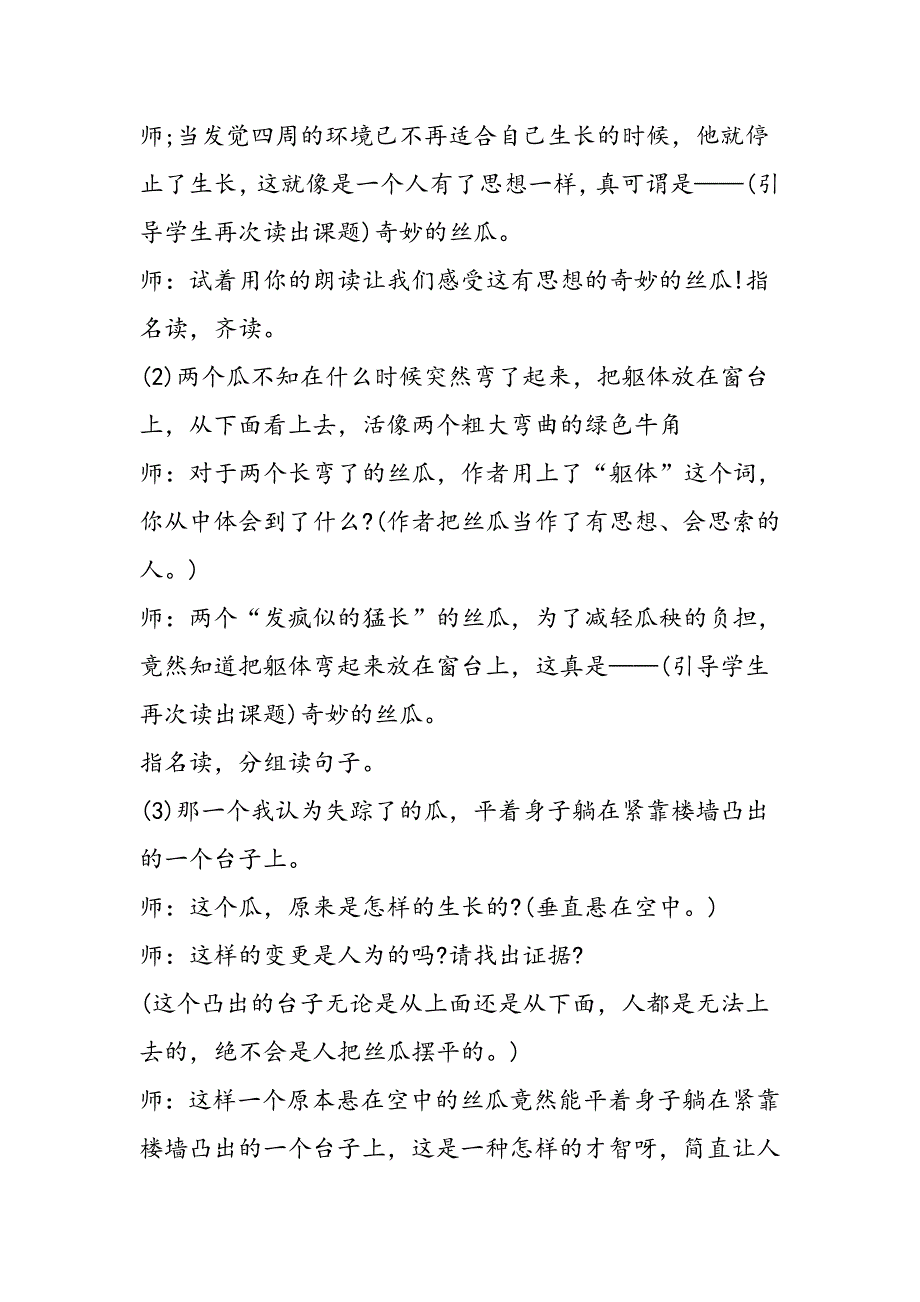 师;当发觉四周的环境已不再适合自己生长的时候，他就停
止了生长，这就像是一个人有了思想一样，真可谓是——(引
导学生再次读出课题)奇妙的丝瓜。
师：试着用你的朗读让我们感受这有思想的奇妙的丝瓜!指
名读，齐读。
(2)两个瓜不知在什么时候突然弯了起来，把躯体放在窗台
上，从下面看上去，活像两个粗大弯曲的绿色牛角
师：对于两个长弯了的丝瓜，作者用上了“躯体”这个词，
你从中体会到了什么?(作者把丝瓜当作了有思想、会思索的
人。)
师：两个“发疯似的猛长”的丝瓜，为了减轻瓜秧的负担，
竟然知道把躯体弯起来放在窗台上，这真是——(引导学生
再次读出课题)奇妙的丝瓜。
指名读，分组读句子。
(3)那一个我认为失踪了的瓜，平着身子躺在紧靠楼墙凸出
的一个台子上。
师：这个瓜，原来是怎样的生长的?(垂直悬在空中。)
师：这样的变更是人为的吗?请找出证据?
(这个凸出的台子无论是从上面还是从下面，人都是无法上
去的，绝不会是人把丝瓜摆平的。)
师：这样一个原本悬在空中的丝瓜竟然能平着身子躺在紧靠
楼墙凸出的一个台子上，这是一种怎样的才智呀，简直让人